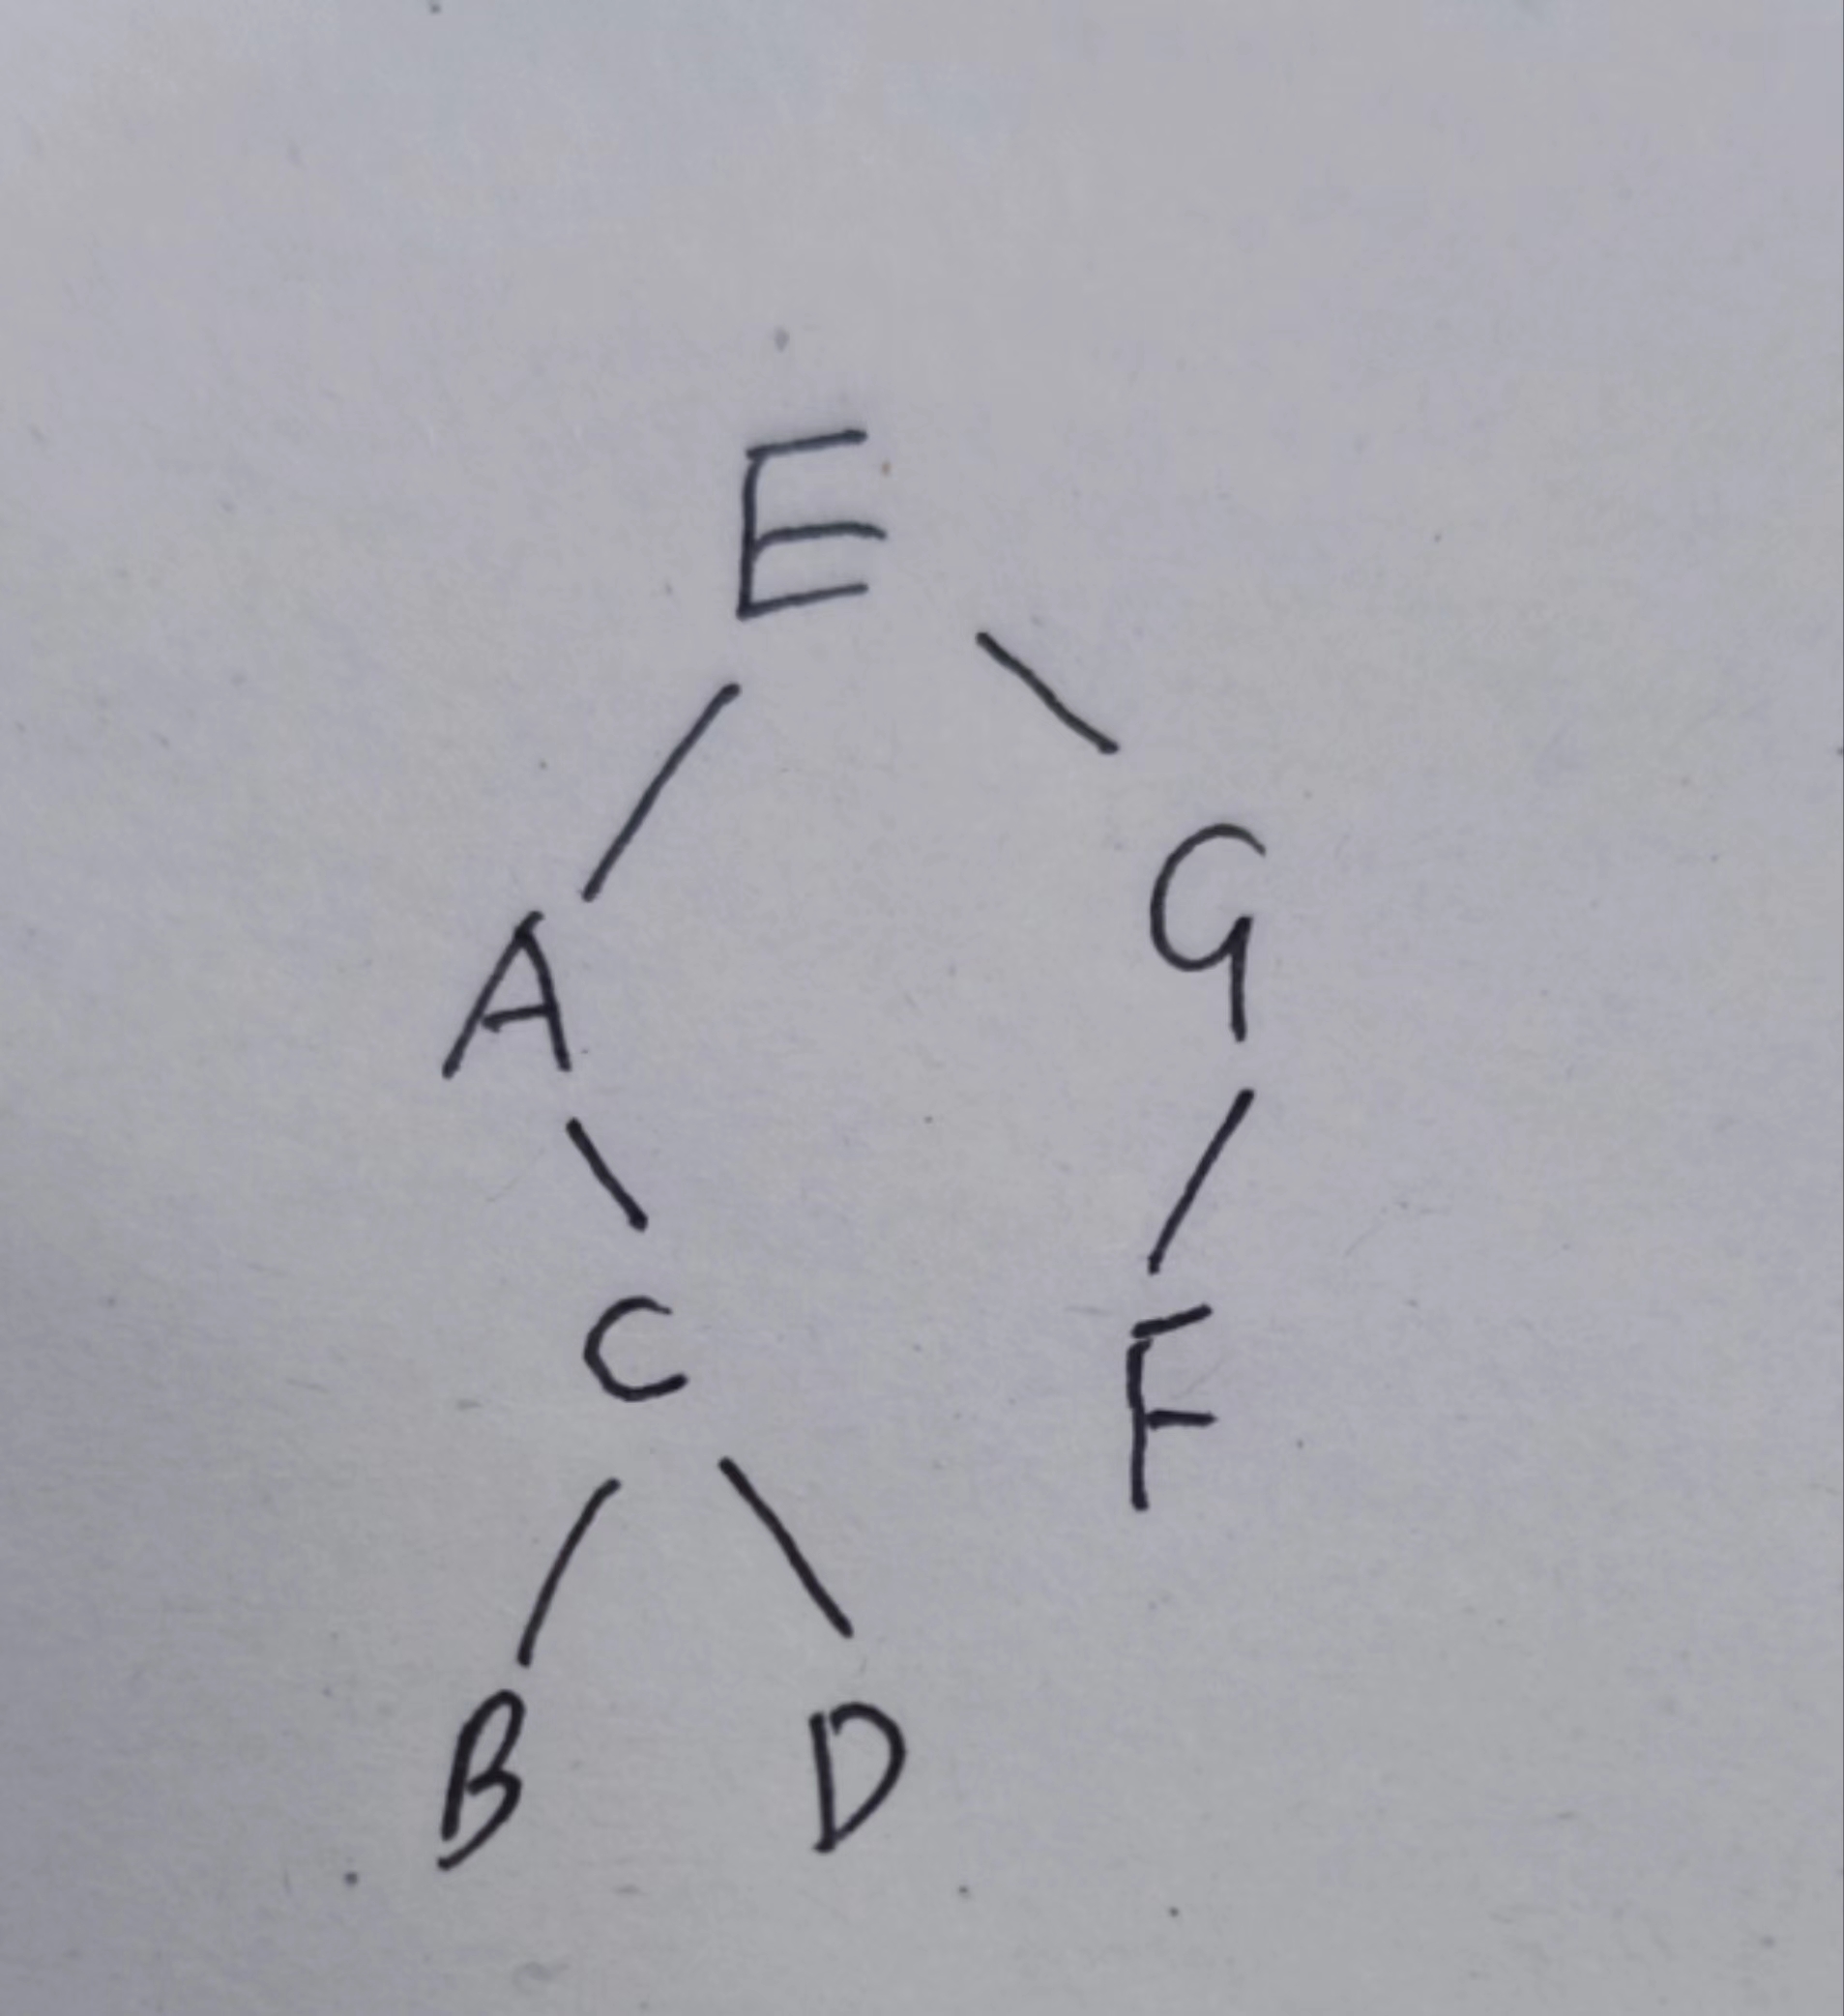 E
A G
C F
B D